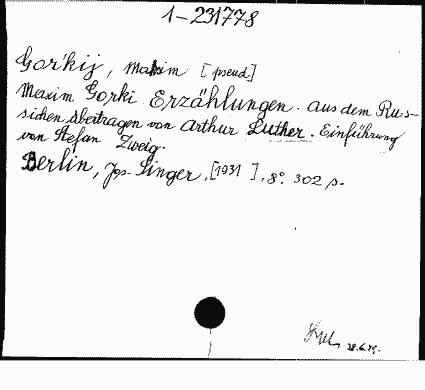 1-231778
Gor'kij, Maksim [pseud]
Maxim Gorki Erzählungen. Aus dem Rus-
sichen übertragen von Arthur Luther. Einführung
von Stefan Zweig.
Berlin, Jos. Singer, [1931 ], 8°. 302 p.
28.6.79.